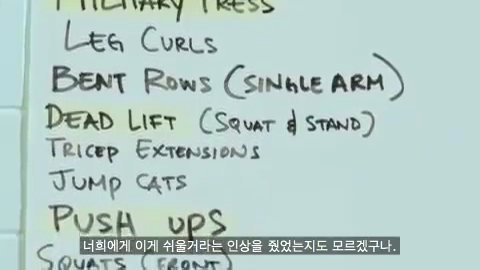 MILITARY PRESS
LEG CURLS
BENT ROWS (SINGLE ARM)
DEAD LIFT (SQUAT & STAND)
TRICEP EXTENSIONS
JUMP CATS
PUSH UPS
너희에게 이게 쉬울거라는 인상을 줬었는지도 모르겠구나.
SQUATS (FRONT)